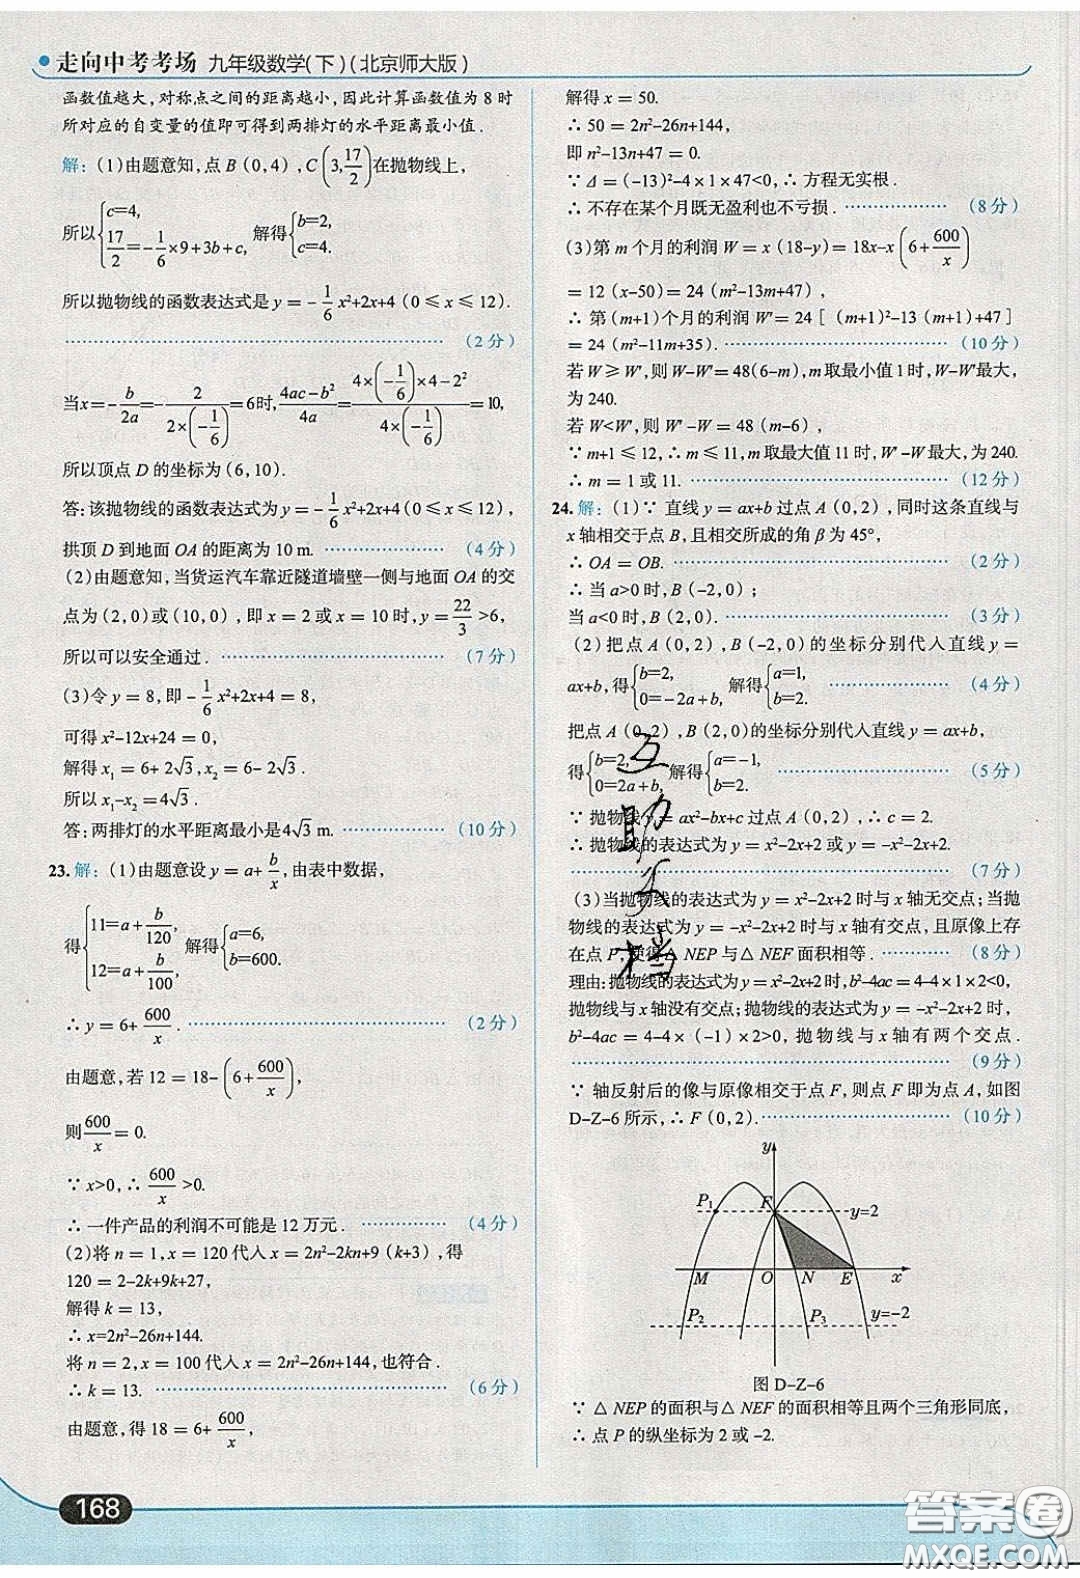 走向中考考场 九年级数学(下)(北京师大版)
函数值越大,对称点之间的距离越小,因此计算函数值为 8 时
所对应的自变量的值即可得到两排灯的水平距离最小值.
解:(1)由题意知,点 B (0,4), C (3, 17/2) 在抛物线上,
所以 { c=4, 17/2 = -1/6 ×9+3b+c, 解得 { b=2, c=4.
所以抛物线的函数表达式是 y = - 1/6 x²+2x+4 (0 ≤ x ≤ 12).
(2 分)
当x=- b/2a =- 2/(2×(-1/6)) =6时, (4ac-b²)/4a = (4×(-1/6)×4-2²)/(4×(-1/6)) =10,
所以顶点 D 的坐标为 (6,10).
答:该抛物线的函数表达式为 y=- 1/6 x²+2x+4 (0≤x≤12),
拱顶 D 到地面 OA 的距离为 10 m. (4 分)
(2)由题意知,当货运汽车靠近隧道墙壁一侧与地面 OA 的交
点为 (2,0)或 (10,0),即 x = 2 或 x = 10 时, y= 22/3 >6,
所以可以安全通过. (7 分)
(3)令 y = 8,即 - 1/6 x²+2x+4 = 8,
可得 x²-12x+24 = 0,
解得 x₁ = 6+ 2√3, x₂ = 6- 2√3.
所以 x₁-x₂ = 4√3.
答:两排灯的水平距离最小是 4√3 m. (10 分)
23.解:(1)由题意设 y = a+ b/x,由表中数据,
得 { 11=a+ b/120, 12=a+ b/100, 解得 { a=6, b=600.
∴ y = 6+ 600/x. (2 分)
由题意,若 12 = 18- (6+ 600/x),
则 600/x = 0.
∵ x>0,∴ 600/x >0.
∴ 一件产品的利润不可能是 12 万元. (4 分)
(2)将 n = 1, x = 120 代入 x = 2n²-2kn+9 (k+3),得
120 = 2-2k+9k+27,
解得 k = 13,
∴ x=2n²-26n+144.
将 n = 2, x = 100 代入 x = 2n²-26n+144,也符合.
∴ k = 13. (6 分)
由题意,得 18 = 6+ 600/x,
解得 x = 50.
∴ 50 = 2n²-26n+144,
即 n²-13n+47 = 0.
∵ Δ = (-13)²-4×1×47<0,∴ 方程无实根.
∴ 不存在某个月既无盈利也不亏损. (8 分)
(3)第 m 个月的利润 W = x (18-y) = 18x-x (6+ 600/x)
= 12 (x-50) = 24 (m²-13m+47),
∴ 第 (m+1)个月的利润 W' = 24 [ (m+1)²-13 (m+1)+47]
= 24 (m²-11m+35). (10 分)
若 W ≥ W',则 W-W'= 48(6-m), m 取最小值 1 时, W-W'最大,
为 240.
若 W<W',则 W' -W = 48 (m-6),
∵ m+1 ≤ 12,∴ m ≤ 11, m 取最大值 11 时, W' -W 最大,为 240.
∴ m = 1 或 11. (12 分)
24.解:(1)∵ 直线 y = ax+b 过点 A (0,2),同时这条直线与
x 轴相交于点 B,且相交所成的角 β 为 45°,
∴ OA = OB. (2 分)
∴ 当 a>0 时, B (-2,0);
当 a<0 时, B (2,0). (3 分)
(2)把点 A (0,2), B (-2,0)的坐标分别代入直线 y =
ax+b,得 { b=2, 0=-2a+b, 解得 { a=1, b=2. (4 分)
把点 A (0,2), B (2,0)的坐标分别代入直线 y = ax+b,
得 { b=2, 0=2a+b, 解得 { a=-1, b=2. (5 分)
∵ 抛物线 y = ax²-bx+c 过点 A (0,2),∴ c = 2.
∴ 抛物线的表达式为 y = x²-2x+2 或 y = -x²-2x+2.
(7 分)
(3)当抛物线的表达式为 y = x²-2x+2 时与 x 轴无交点;当抛
物线的表达式为 y = -x²-2x+2 时与 x 轴有交点,且原像上存
在点 P,使得△ NEP 与△ NEF 面积相等. (8 分)
理由:抛物线的表达式为 y = x²-2x+2 时, b²-4ac = 4-4×1×2<0,
抛物线与 x轴没有交点;抛物线的表达式为 y = -x²-2x+2 时,
b²-4ac = 4-4× (-1) ×2>0, 抛物线与 x 轴有两个交点.
(9 分)
∵ 轴反射后的像与原像相交于点 F,则点 F 即为点 A,如图
D-Z-6 所示,∴ F (0,2). (10 分)
y
P₁ F y=2
M O N E x
P₂ P₃ y=-2
图 D-Z-6
∵ △ NEP 的面积与△ NEF 的面积相等且两个三角形同底,
∴ 点 P 的纵坐标为 2 或 -2.
互助文档
168
答案圈
MXQE.COM